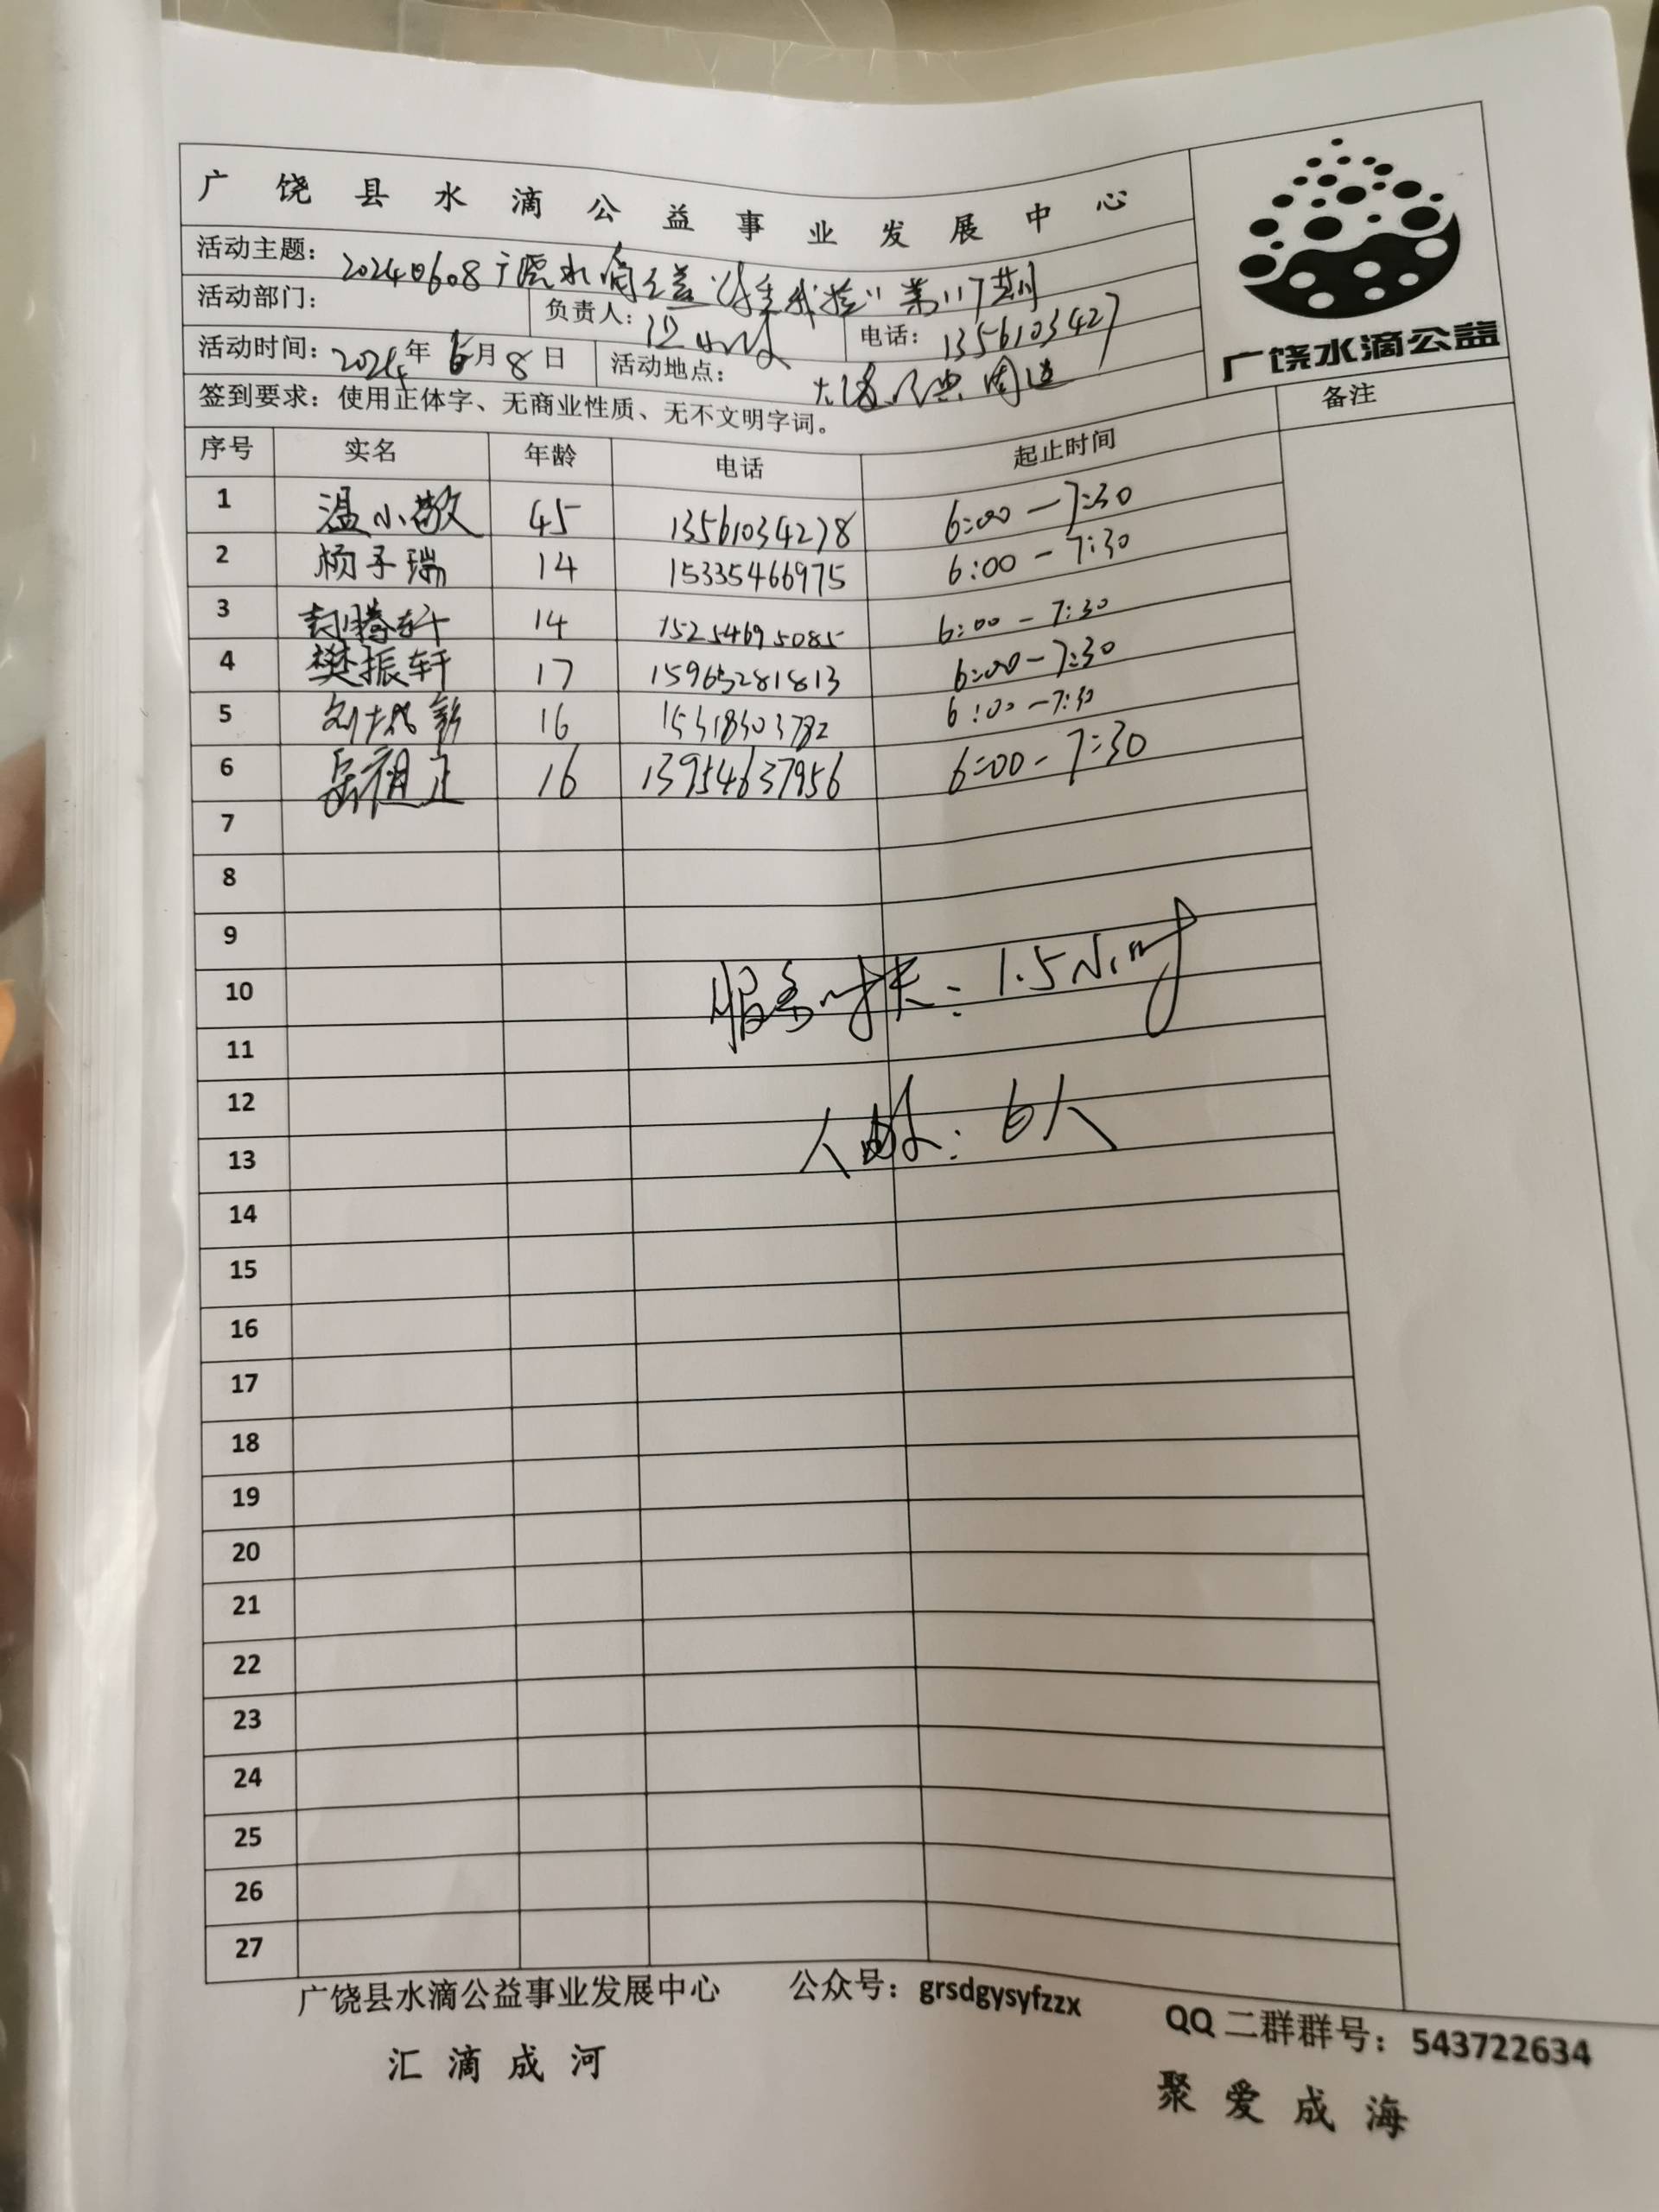 广饶县水滴公益事业发展中心
活动主题：20240608广饶水滴公益 第117期
广饶水滴公益
活动部门： 负责人：温小敬 电话：1356103427
活动时间：2024年6月8日 活动地点： 周边
签到要求：使用正体字、无商业性质、无不文明字词。
序号 实名 年龄 电话 起止时间 备注
1 温小敬 45 13561034278 6:00-7:30
2 杨子瑞 14 15335466975 6:00-7:30
3 封腾轩 14 15254695085 6:00-7:30
4 樊振轩 17 15965281813 6:00-7:30
5 16 6:00-7:30
6 岳祖正 16 13954637956 6:00-7:30
7
8
9
服务时长：1.5小时
10
11
12
人数：6人
13
14
15
16
17
18
19
20
21
22
23
24
25
26
27
广饶县水滴公益事业发展中心 公众号：grsdgysyfzzx QQ二群群号：543722634
汇滴成河 聚爱成海